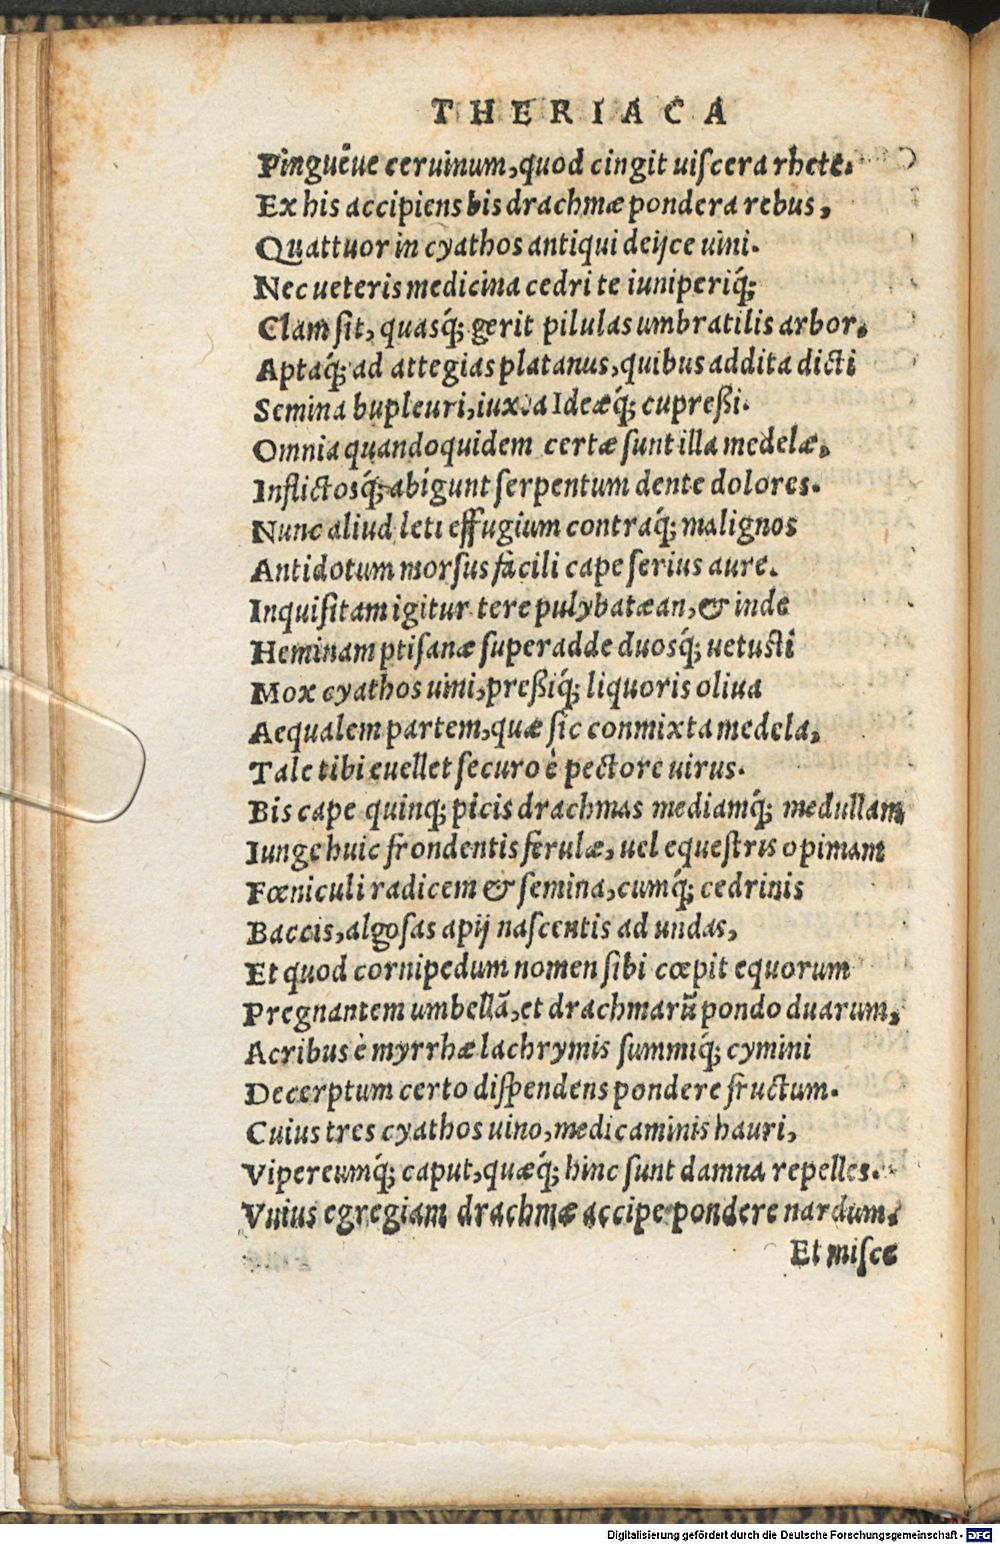 THERIACA
Pinguéue ceruinum, quod cingit uiſcera rhete.
Ex his accipiens bis drachmæ pondera rebus,
Quattuor in cyathos antiqui deijce uini.
Nec ueteris medicina cedri te iuniperiq́;
Clam ſit, quasq́; gerit pilulas umbratilis arbor.
Aptaq́; ad attegias platanus, quibus addita dicti
Semina bupleuri, iuxta Ideæq́; cupreßi.
Omnia quandoquidem certæ ſunt illa medelæ.
Inflictosq́; abigunt ſerpentum dente dolores.
Nunc aliud leti effugium contraq́; malignos
Antidotum morſus facili cape ſerius aure.
Inquiſitam igitur tere pulybatæan, & inde
Heminam ptiſanæ ſuperadde duosq́; uetusti
Mox cyathos uini, preßiq́; liquoris oliua
Aequalem partem, quæ ſic conmixta medela,
Tale tibi euellet ſecuro è pectore uirus.
Bis cape quinq; picis drachmas mediamq́; medullam
Iunge huic frondentis ferulæ, uel equeſtris opimam
Fœniculi radicem & ſemina, cumq́; cedrinis
Baccis, algoſas apij naſcentis ad undas,
Et quod cornipedum nomen ſibi cœpit equorum
Pregnantem umbellā, et drachmarū pondo duarum,
Acribus è myrrhæ lachrymis ſummiq́; cymini
Decerptum certo diſpendens pondere fructum.
Cuius tres cyathos uino, medicaminis hauri,
Vipereumq́; caput, quæq́; hinc ſunt damna repelles.
Vnius egregiam drachmæ accipe pondere nardum.
Et miſce
Digitalisierung gefördert durch die Deutsche Forschungsgemeinschaft - DFG